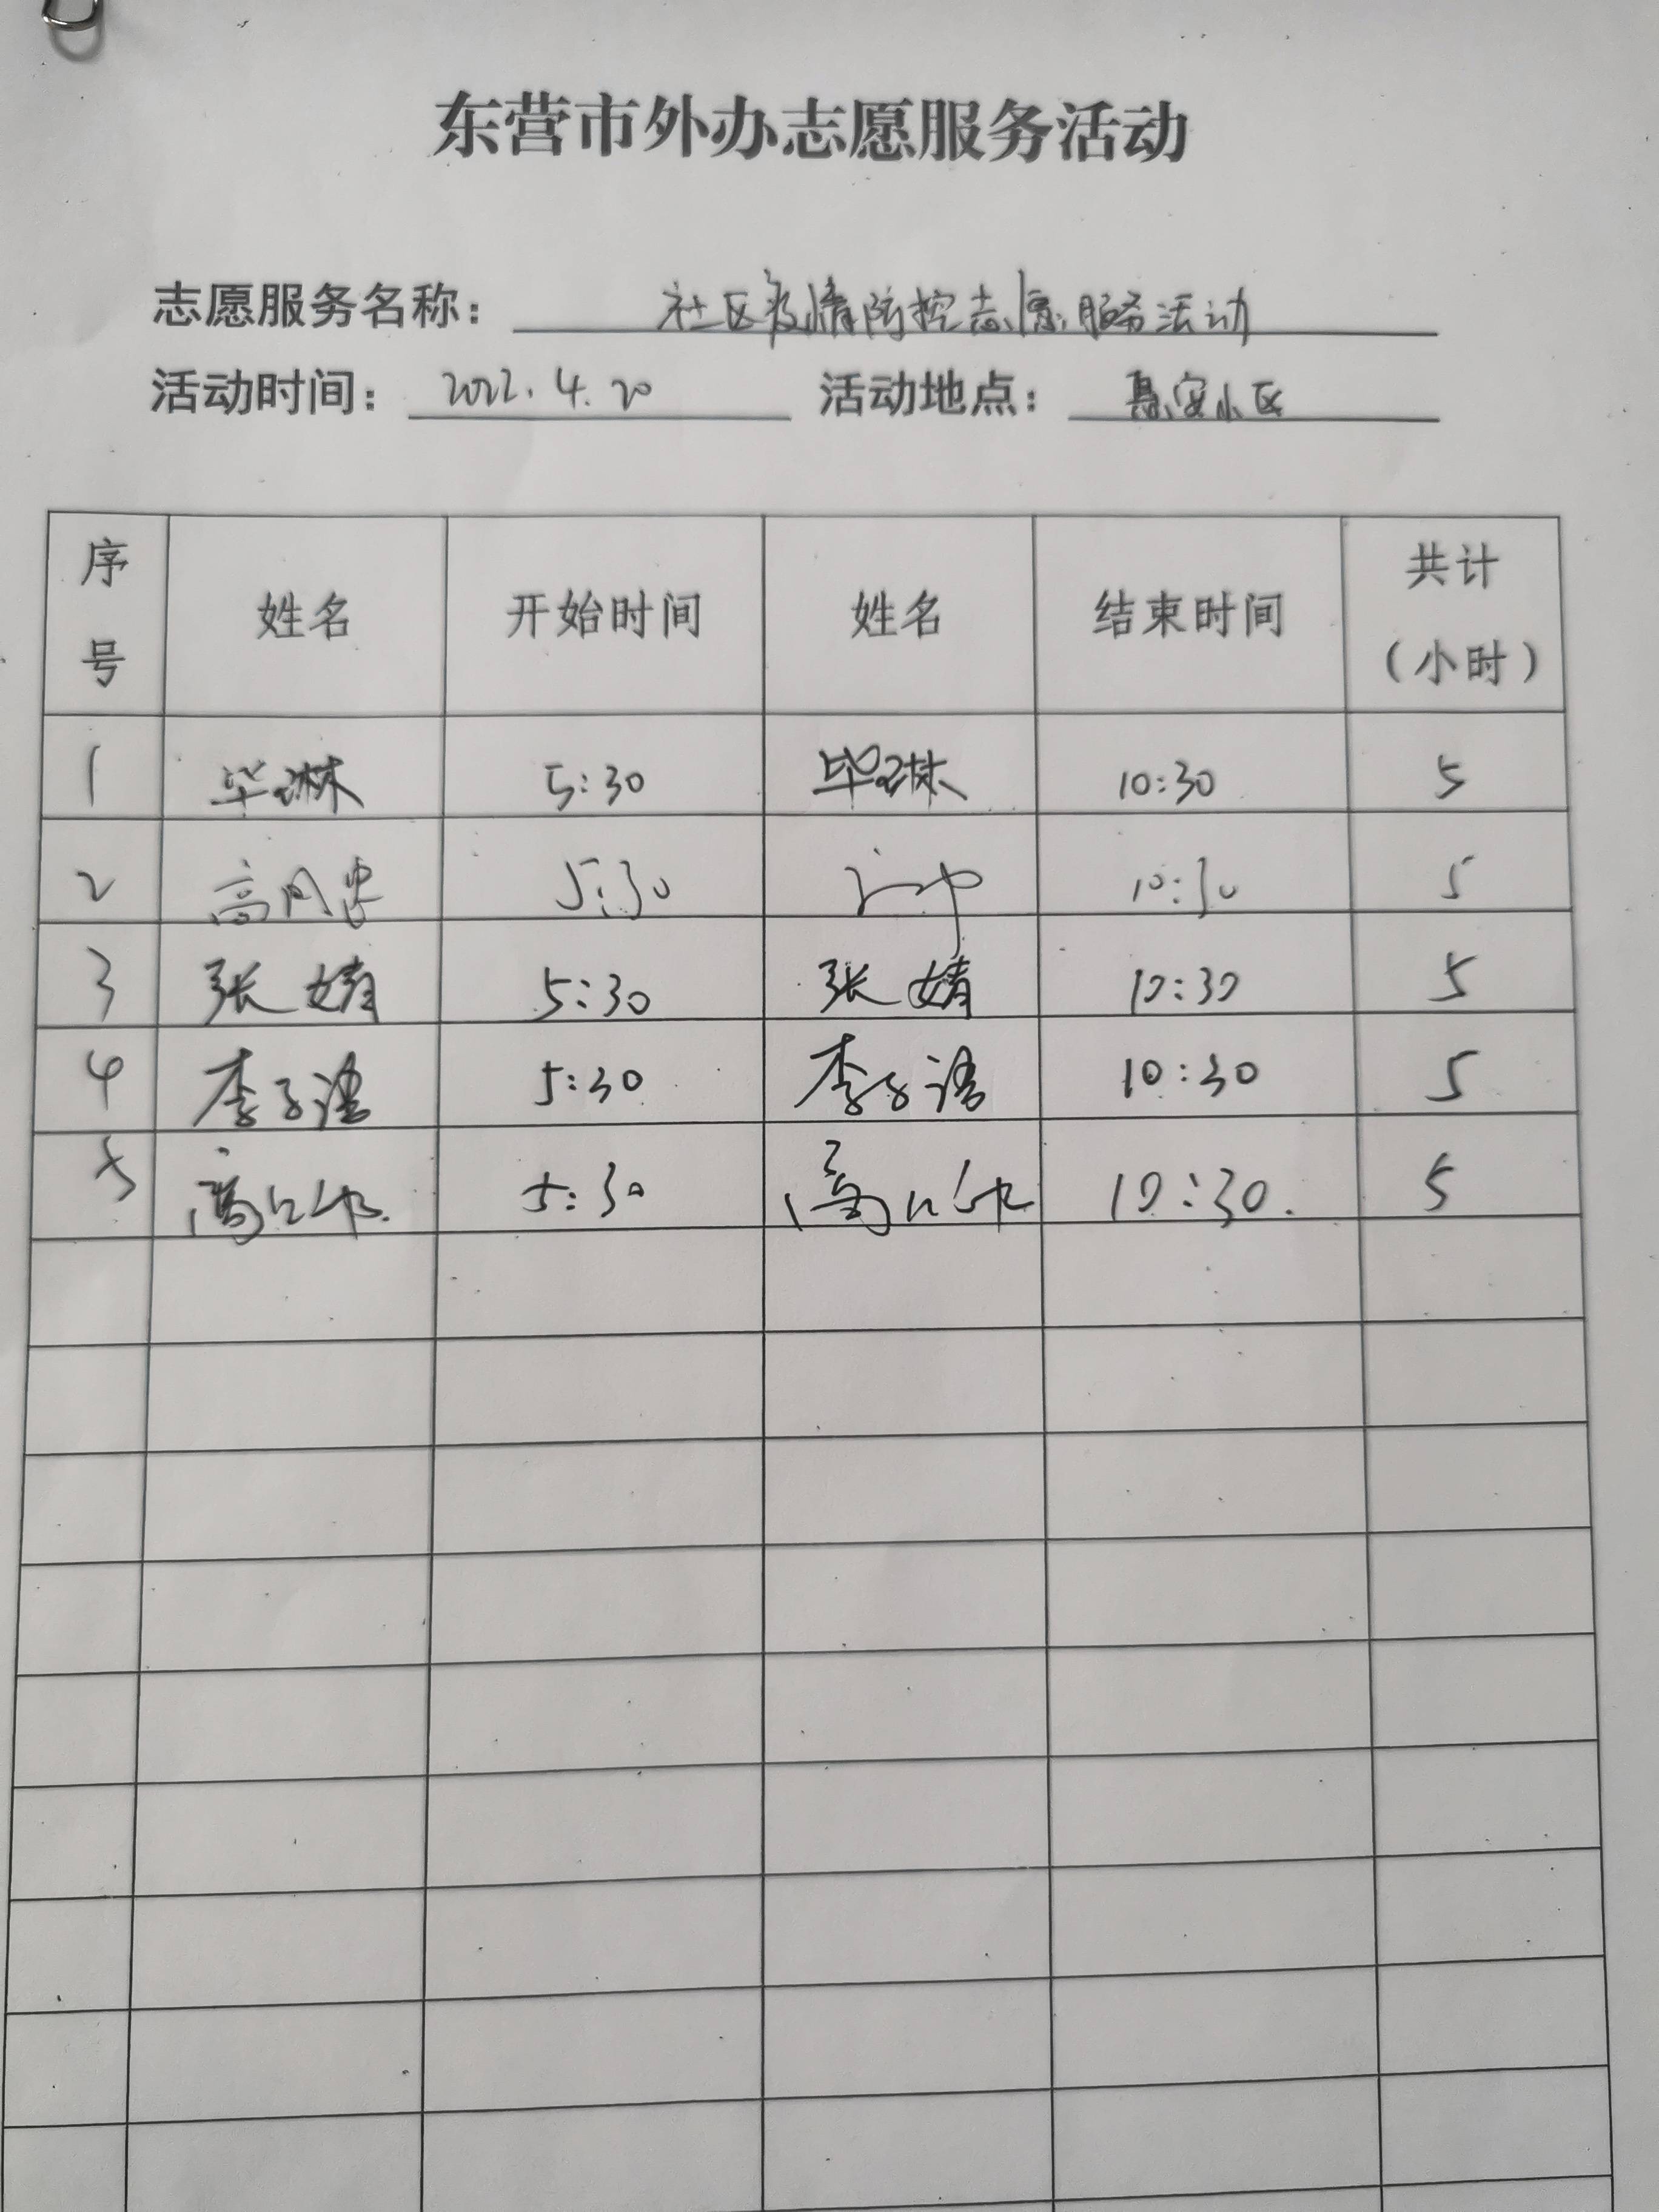 东营市外办志愿服务活动
志愿服务名称： 社区疫情防控志愿服务活动
活动时间： 2022.4.20 活动地点： 惠安小区
序号 姓名 开始时间 姓名 结束时间 共计（小时）
1 毕琳 5:30 毕琳 10:30 5
2 高 5:30 10:30 5
3 张婧 5:30 张婧 10:30 5
4 李子 5:30 李子 10:30 5
5 5:30 10:30. 5